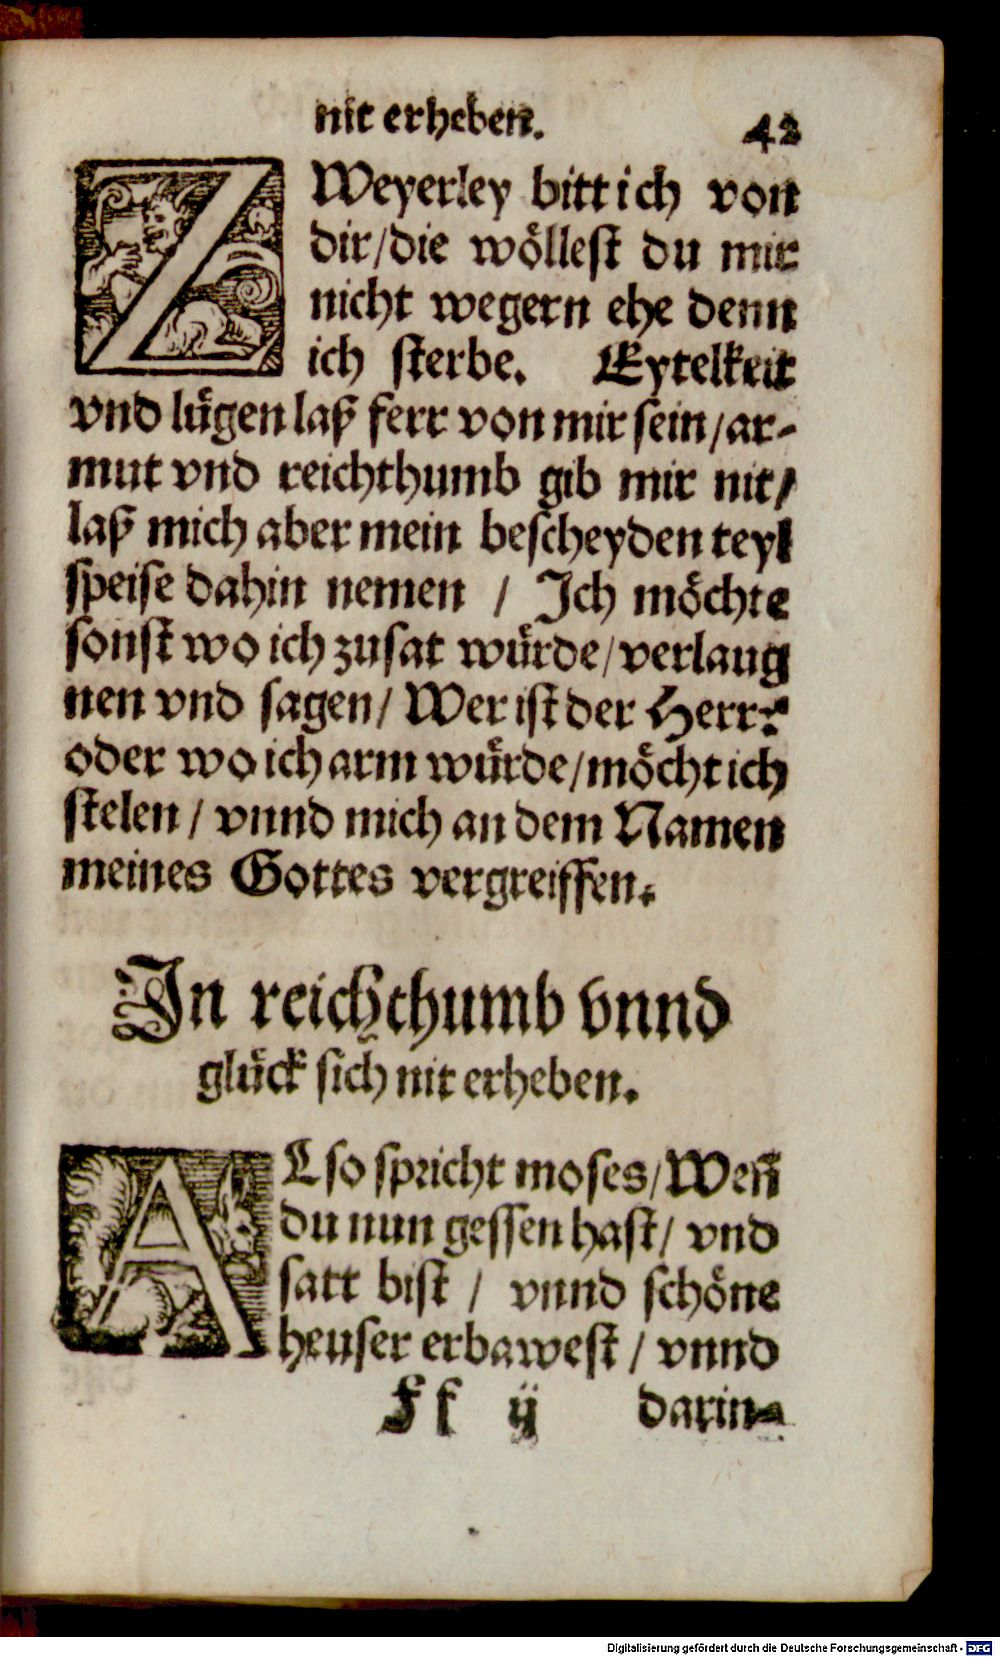 nit erheben. 42
ZWeyerley bitt ich von
dir/die wöllest du mir
nicht wegern ehe denn
ich sterbe. Eytelkeit
vnd lügen laß ferr von mir sein/ar-
mut vnd reichthumb gib mir nit/
laß mich aber mein bescheyden teyl
speise dahin nemen / Ich möchte
sonst wo ich zu sat würde/verlaug
nen vnd sagen/ Wer ist der Herr?
oder wo ich arm würde/möcht ich
stelen / vnnd mich an dem Namen
meines Gottes vergreiffen.
In reichthumb vnnd
glück sich nit erheben.
ALso spricht moses/Weñ
du nun gessen hast/ vnd
satt bist / vnnd schöne
heuser erbawest / vnnd
Ff ij darin-
Digitalisierung gefördert durch die Deutsche Forschungsgemeinschaft - DFG